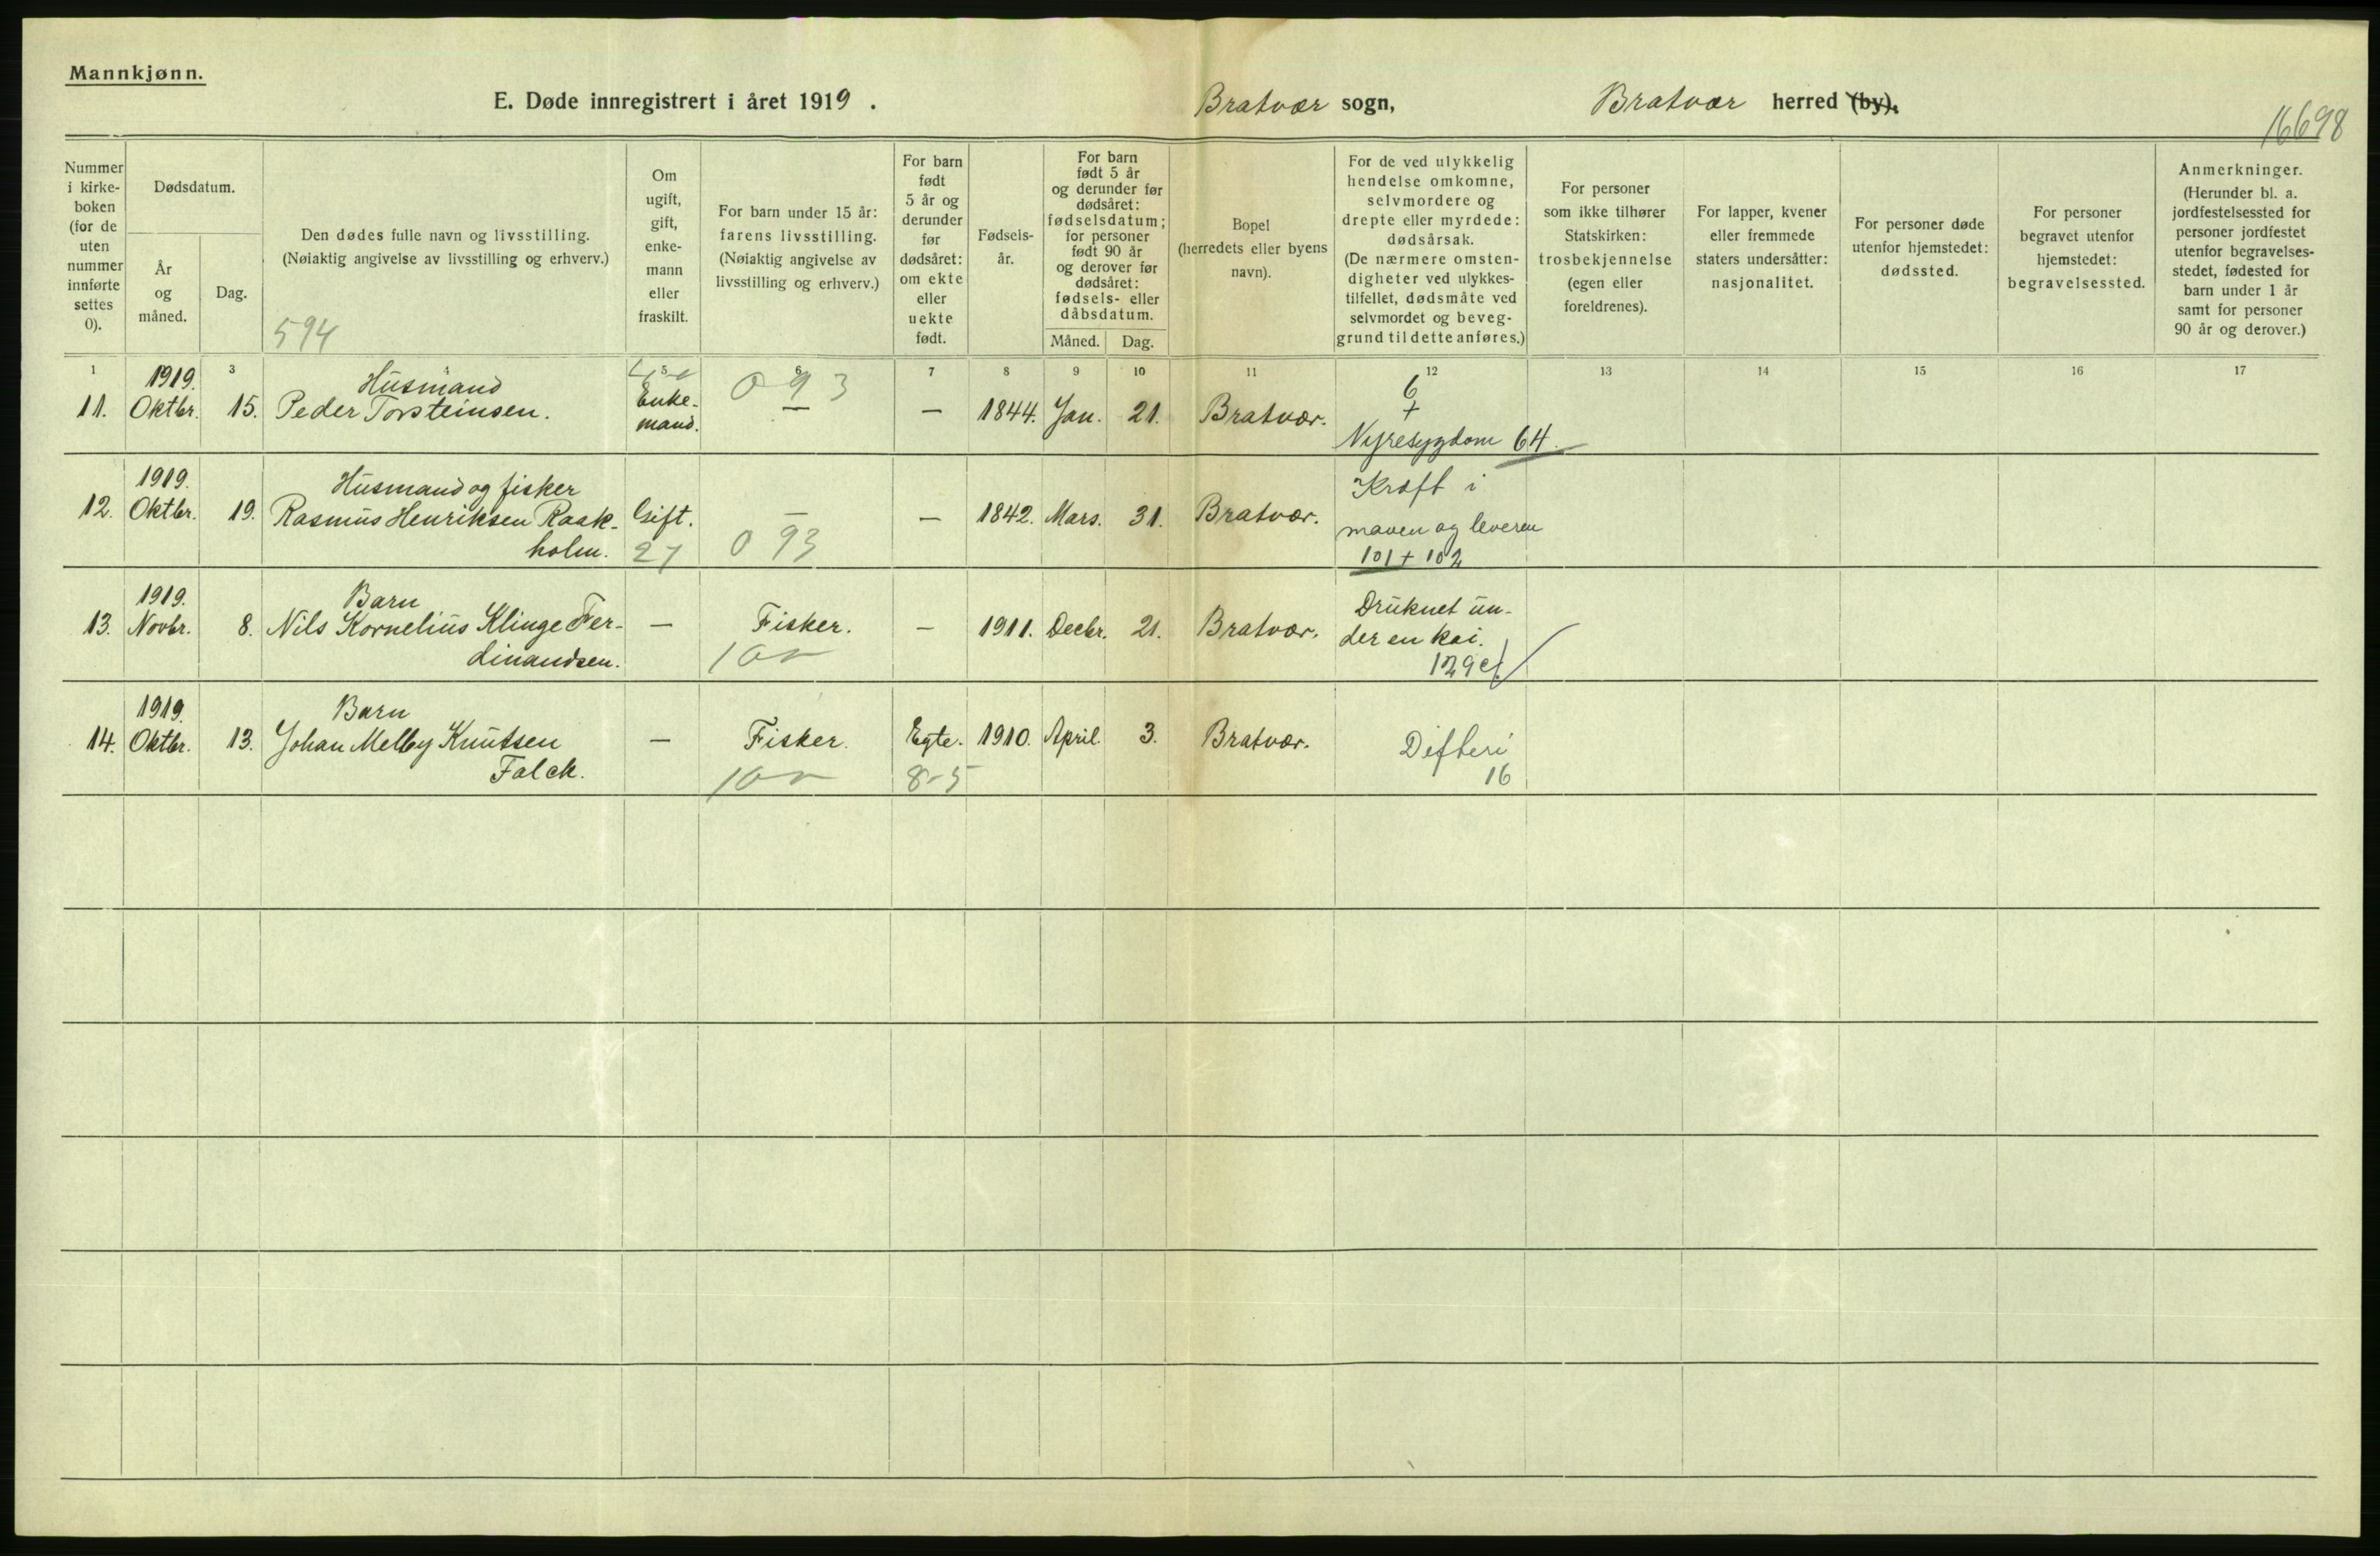 Mannkjønn.
E. Døde innregistrert i året 1919 .
Bratvær sogn,
Bratvær herred (by).
16698
Nummer i kirke- boken (for de uten nummer innførte settes 0).
Dødsdatum.
År og måned.
Dag.
Den dødes fulle navn og livsstilling.
(Nøiaktig angivelse av livsstilling og erhverv.)
594
Om ugift, gift, enke- mann eller fraskilt.
For barn under 15 år: farens livsstilling.
(Nøiaktig angivelse av livsstilling og erhverv.)
For barn født 5 år og derunder før dødsåret: om ekte eller uekte født.
Fødsels- år.
For barn født 5 år og derunder før dødsåret: fødselsdatum; for personer født 90 år og derover før dødsåret: fødsels- eller dåbsdatum.
Måned. Dag.
Bopel (herredets eller byens navn).
For de ved ulykkelig hendelse omkomne, selvmordere og drepte eller myrdede: dødsårsak.
(De nærmere omsten- digheter ved ulykkes- tilfellet, dødsmåte ved selvmordet og beveg- grund til dette anføres.)
For personer som ikke tilhører Statskirken: trosbekjennelse (egen eller foreldrenes).
For lapper, kvener eller fremmede staters undersåtter: nasjonalitet.
For personer døde utenfor hjemstedet: dødssted.
For personer begravet utenfor hjemstedet: begravelsessted.
Anmerkninger.
(Herunder bl. a. jordfestelsessted for personer jordfestet utenfor begravelses- stedet, fødested for barn under 1 år samt for personer 90 år og derover.)
1 3 5 6 7 8 9 10 11 12 13 14 15 16 17
1919. Husmand 0 9 3 6
+
11. Oktbr. 15. Peder Torsteinsen. Enke- mand. — — 1844. Jan. 21. Bratvær.
Nyresygdom 64.
1919. Husmand og fisker Kræft i
12. Oktbr. 19. Rasmus Henriksen Raak- Gift. — — 1842. Mars. 31. Bratvær. maven og leveren
holm. 27 0 93 101 + 102
1919. Barn Druknet un-
13. Novbr. 8. Nils Kornelius Klinge Fer- — Fisker. — 1911. Decbr. 21. Bratvær. der en kai.
dinandsen.
1919. Barn
14. Oktbr. 13. Johan Melby Knutsen — Fisker. Egte. 1910. April. 3. Bratvær. Difteri
Falck. 8-5 16